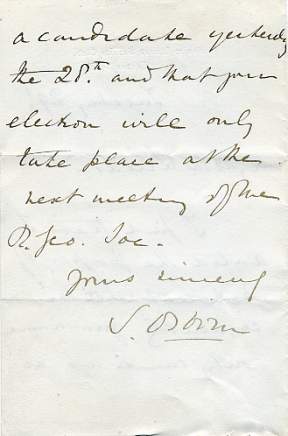 a candidate yesterday
the 28.th and that your
election will only
take place at the
next meeting of the
R. Geo. Soc.
Yours sincerely
S. Osborn